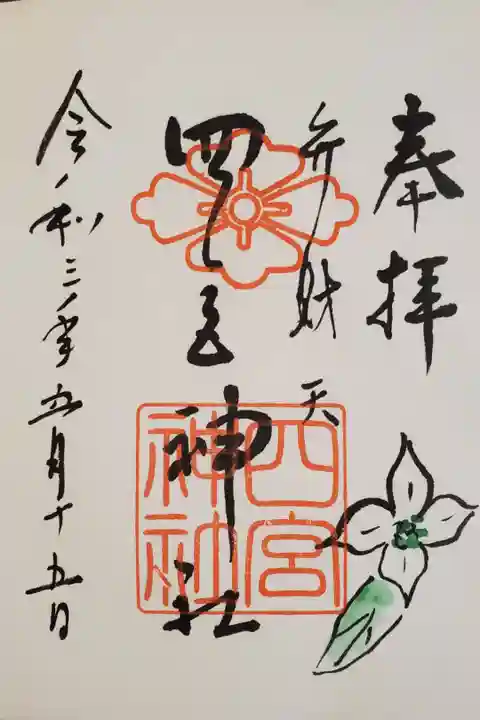 奉拝
弁財天
四之宮神社
四宮神社
令和三年五月十五日